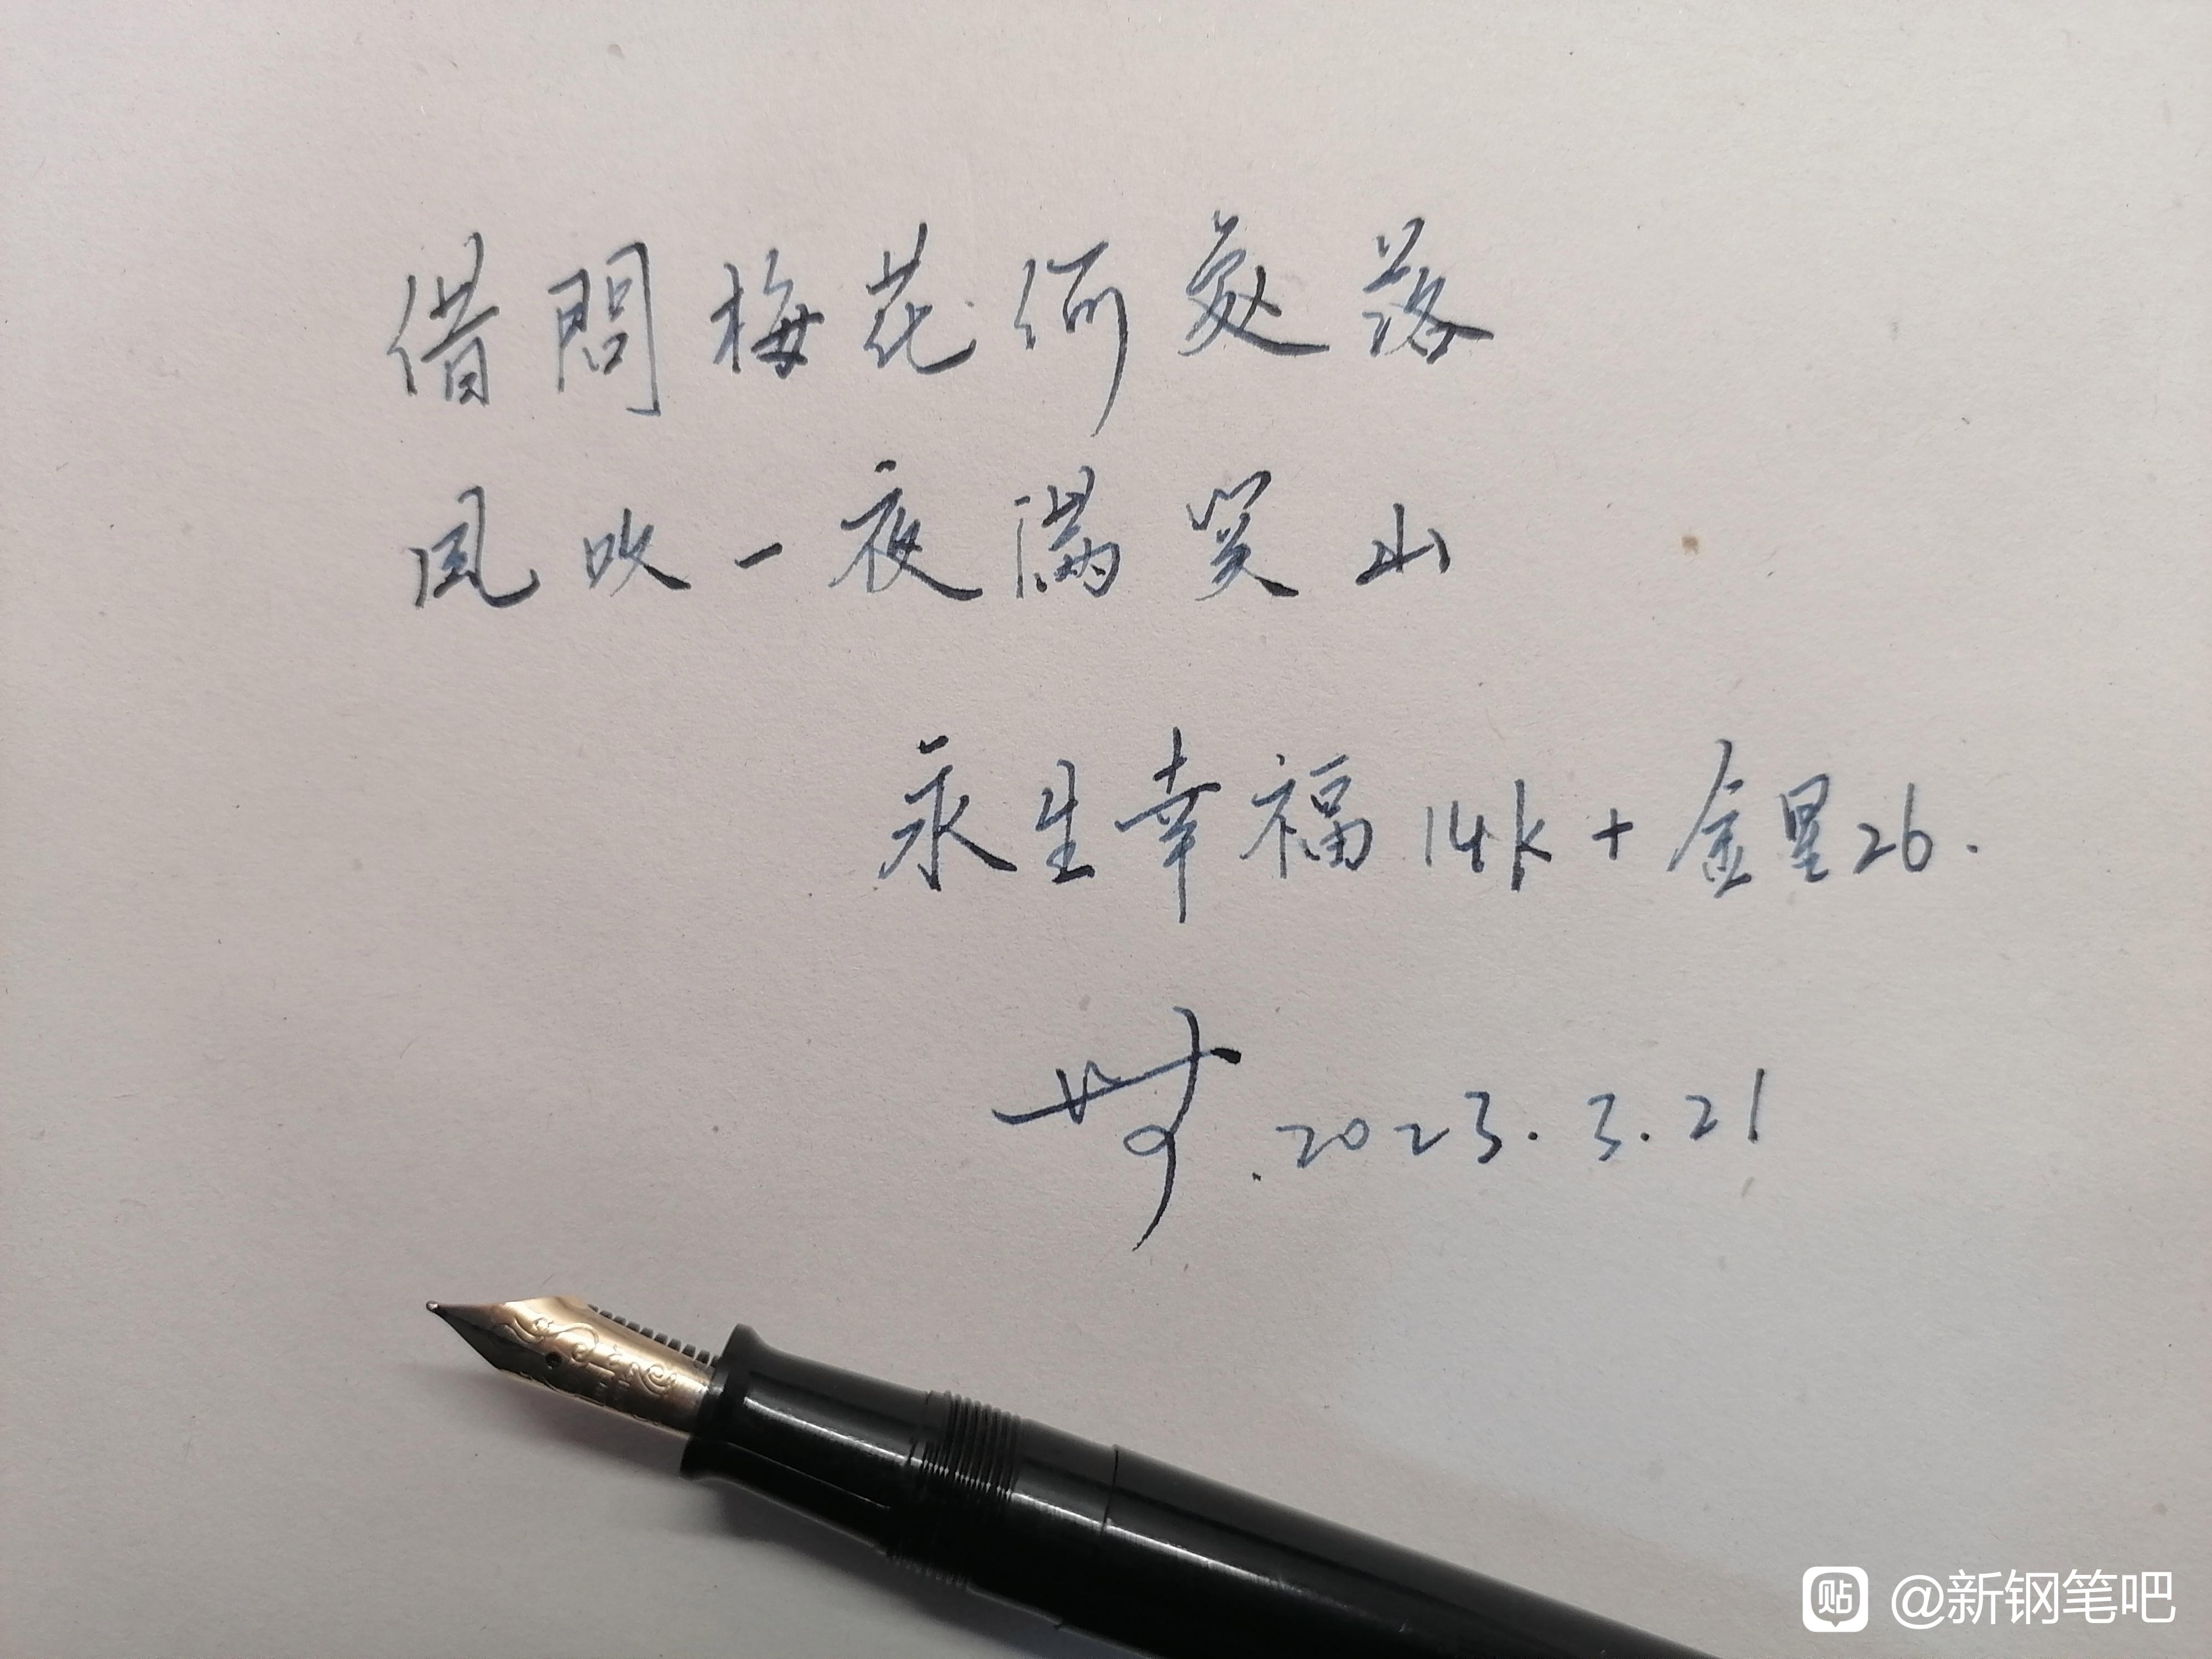 借問梅花何處落
風吹一夜滿關山
永生幸福14k+金星26.
.2023.3.21
贴 @新钢笔吧